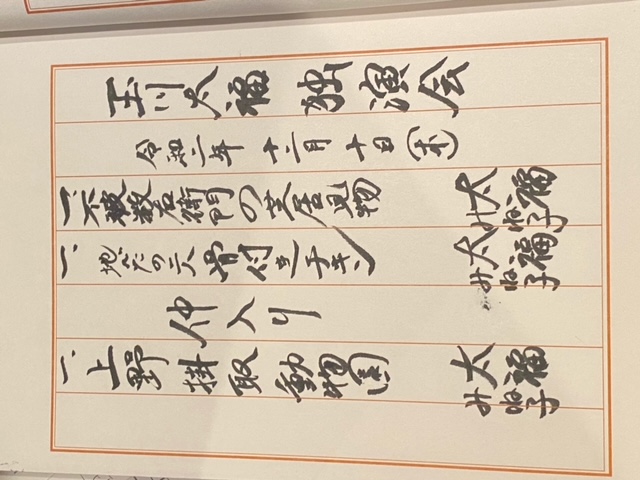 玉川太福 独演会
令和二年 十二月 十日(木)
一、不破数右衛門の芝居見物 太福 みね子
一、地べたの二人 骨付きチキン 太福 みね子
仲入り
一、上野掛取動物園 太福 みね子